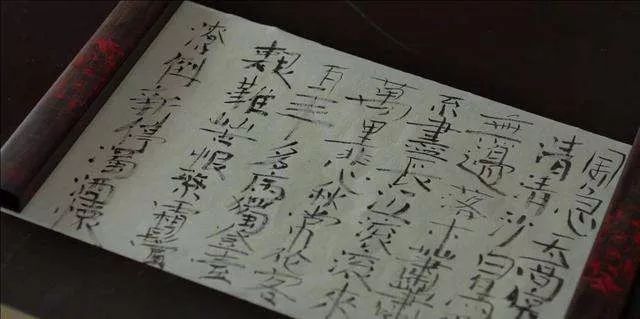 風急天高猿
清清沙白鳥
無邊落木蕭蕭
不盡長江滾滾來
萬里悲秋常作客
百年多病獨登臺
艱難苦恨繁霜鬢
潦倒新停濁酒